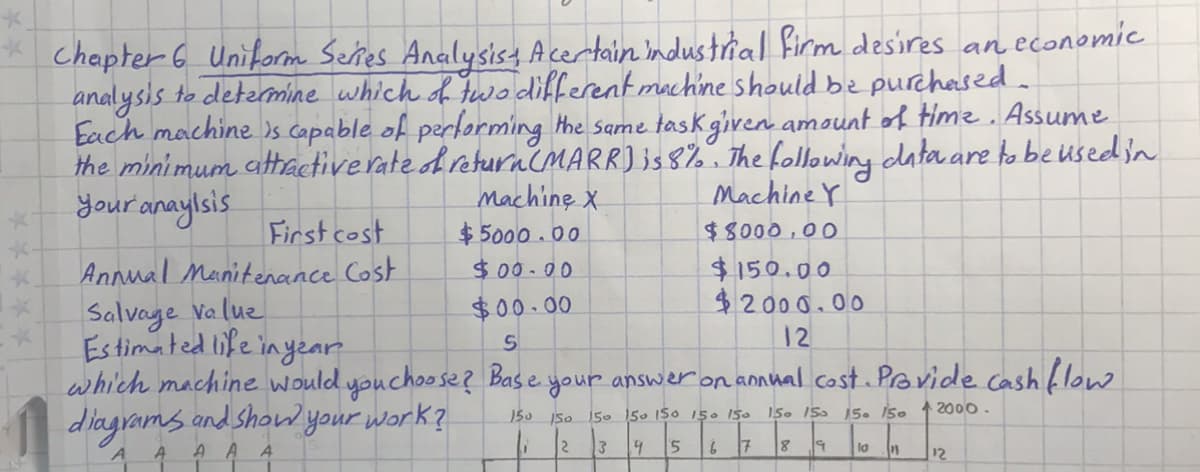 Chapter 6 Uniform Series Analysis: A certain industrial firm desires an economic
analysis to determine which of two different machine should be purchased.
Each machine is capable of performing the same task given amount of time. Assume
the minimum attractive rate of return (MARR) is 8%. The following data are to be used in
your anaylsis Machine X Machine Y
First cost $5000.00 $8000,00
Annual Manitenance Cost $00.00 $150.00
Salvage Value $00.00 $2000.00
Estimated life in year 5 12
which machine would you choose? Base your answer on annual cost. Provide cash flow
diagrams and show your work? 150 150 150 150 150 150 150 150 150 150 150 2000.
A A A A A 1 2 3 4 5 6 7 8 9 10 11 12